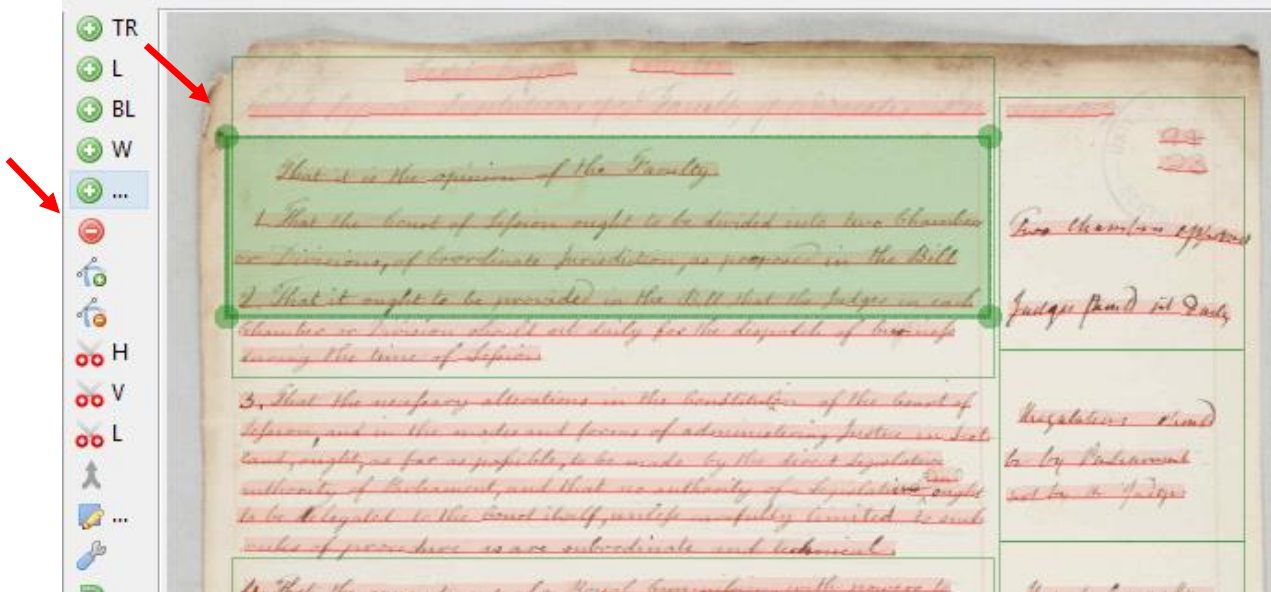 TR
L
BL
W
...
H
V
L
...
That it is the opinion of the Faculty
1. That the Court of Session ought to be divided into two Chambers
or Divisions, of Coordinate Jurisdiction, as proposed in the Bill
2 That it ought to be provided in the Bill that the Judges in each
Chamber or Division should sit daily for the dispatch of business
during the time of Session
3. That the necessary alterations in the Constitution of the Court of
Session, and in the modes and forms of administering Justice in Scot
land, ought, as far as possible, to be made by the direct Legislative
authority of Parliament, and that no authority of a Legislative ought
to be delegated to the Court itself, unless carefully limited to such
rules of procedure as are subordinate and technical.
4. That the
Royal Commission with powers to
Two Chambers approved
Judges sit Daily
Regulations
be by Parliament
not by the Judges